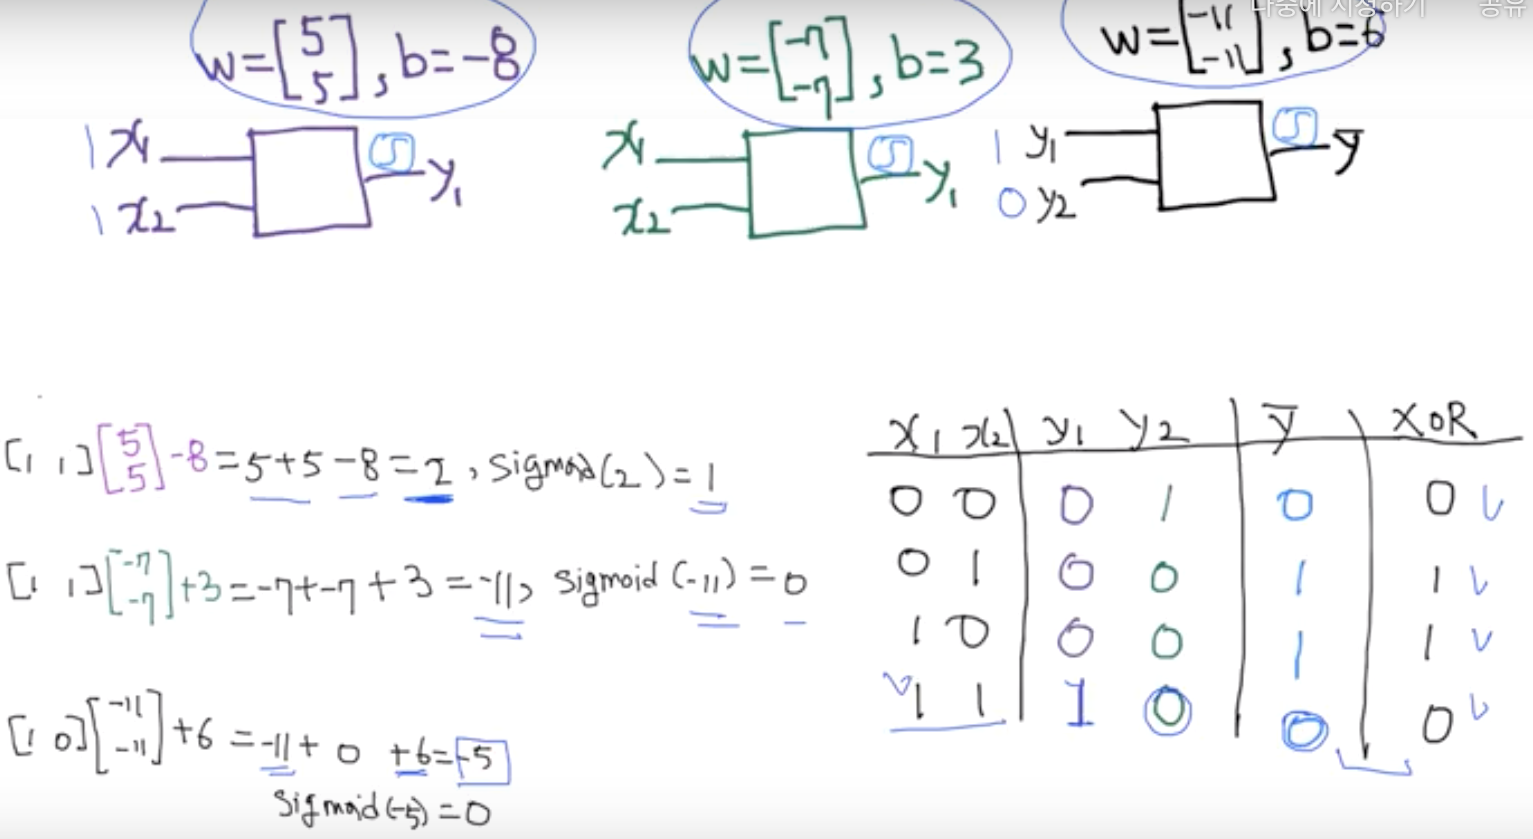 나중에 시청하기 공유
w=[5 5], b=-8
w=[-7 -7], b=3
w=[-11 -11], b=6
1 x1 S y1
1 x2
x1 S y1
x2
1 y1 S ȳ
0 y2
[1 1][5 5]-8=5+5-8=2, sigmoid(2)=1
[1 1][-7 -7]+3=-7+-7+3=-11, sigmoid(-11)=0
[1 0][-11 -11]+6=-11+0+6=-5
sigmoid(-5)=0
x1 x2 y1 y2 ȳ XOR
0 0 0 1 0 0
0 1 0 0 1 1
1 0 0 0 1 1
1 1 1 0 0 0